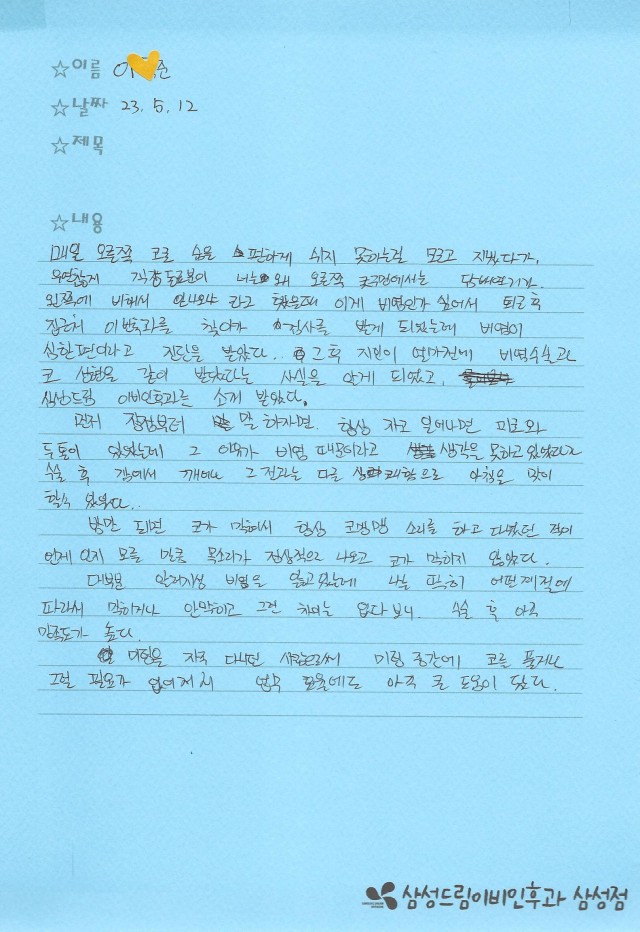 ☆이름 이 준
☆날짜 23. 5. 12
☆제목
☆내용
매일 오른쪽 코로 숨을 편하게 쉬지 못하는걸 모르고 지냈다가,
우연찮게 직장동료분이 너는 왜 오른쪽 콧구멍에서는
왼쪽에 비해서 안나오냐 라고 했을때 이게 비염인가 싶어서 퇴근 후
집근처 이비후과를 찾아가 검사를 받게 되었는데 비염이
심한편이라고 진단을 받았다.. 그 후 지인이 얼마전에 비염수술과
코 성형을 같이 받았다는 사실을 알게 되었고,
삼성드림 이비인후과를 소개 받았다.
먼저 장점부터 말 하자면. 항상 자고 일어나면 피로와
두통이 있었는데 그 이유가 비염 때문이라고 생각을 못하고 있었다가
수술 후 잠에서 깨어나 그 전과는 다른 상쾌함으로 아침을 맞이
할수 있었다..
밤만 되면 코가 막혀서 항상 코맹맹 소리를 하고 다녔던 적이
언제 인지 모를 만큼 목소리가 정상적으로 나오고 코가 막히지 않았다.
대부분 알러지성 비염을 앓고 있는데 나는 딱히 어떤계절에
따라서 막히거나 안막히고 그런 차이는 없다 보니. 수술 후 아주
만족도가 높다.
미팅을 자주 다니던 사람으로서 미팅 중간에 코를 풀거나
그럴 필요가 없어져서 업무 효율에도 아주 큰 도움이 됐다.
삼성드림이비인후과 삼성점